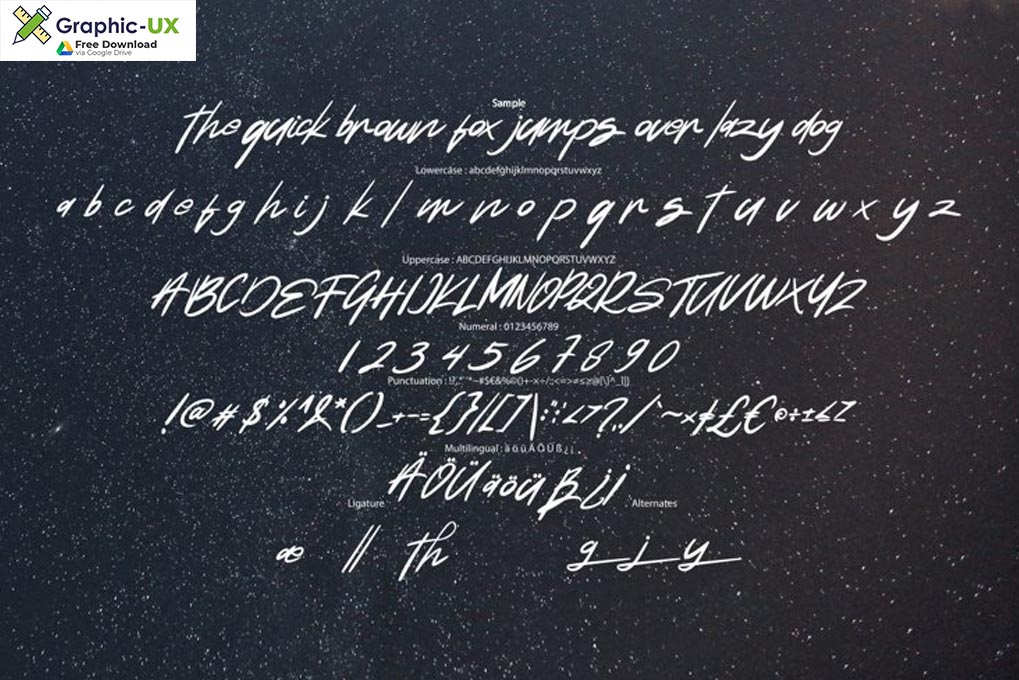 Graphic-UX
Free Download
via Google Drive
Sample
the quick brown fox jumps over lazy dog
Lowercase : abcdefghijklmnopqrstuvwxyz
a b c d e f g h i j k l m n o p q r s t u v w x y z
Uppercase : ABCDEFGHIJKLMNOPQRSTUVWXYZ
ABCDEFGHIJKLMNOPQRSTUVWXYZ
Numeral : 0123456789
1 2 3 4 5 6 7 8 9 0
Punctuation :
!@#$%^&*()_+-={}|[]\:;<>?,./`~×≠£€©÷±≤≥
Multilingual : ä ö ü Ä Ö Ü ß ¿ ¡
ÄÖÜäöüß¿¡
Ligature
Alternates
æ ll th
g j y